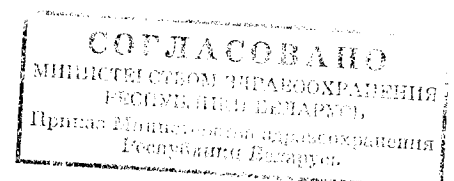 СОГЛАСОВАНО
МИНИСТЕРСТВОМ ЗДРАВООХРАНЕНИЯ
РЕСПУБЛИКИ БЕЛАРУСЬ
Приказ Министерства здравоохранения
Республики Беларусь